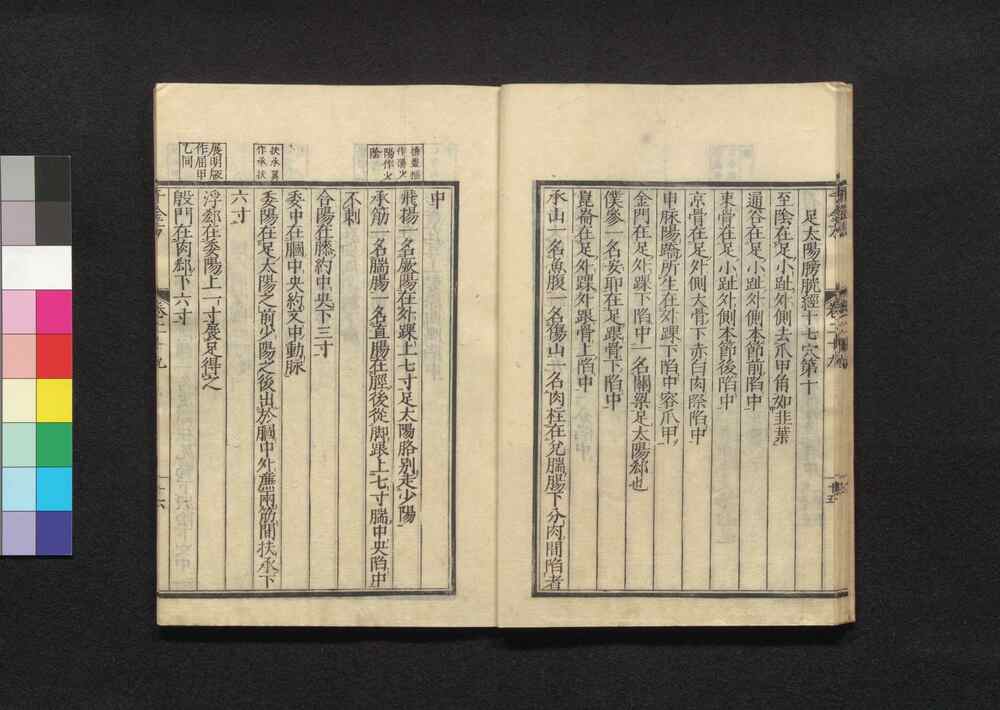 足太陽膀胱經十七穴第十
至陰在足小趾外側去爪甲角如韭葉
通谷在足小趾外側本節前陷中
束骨在足小趾外側本節後陷中
京骨在足外側大骨下赤白肉際陷中
申脉陽蹻所生在外踝下陷中容爪甲
金門在足外踝下陷中一名關梁足太陽郄也
僕參一名安耶在足跟骨下陷中
崑崙在足外踝外跟骨上陷中
承山一名魚腹一名傷山一名肉柱在兊腨腸下分肉間陷者
中
飛揚一名厥陽在外踝上七寸足太陽胳別走少陽
承筋一名腨腸一名直腸在脛後從脚跟上七寸腨中央陷中
不刺
合陽在膝約中央下三寸
委中在膕中央約文中動脉
委陽在足太陽之前少陽之後出於膕中外亷兩筋間扶承下
六寸
浮郄在委陽上一寸
展足得之
殷門在肉郄下六寸
扶承冀
作承扶
展明版
作屈甲
乙同
卷二十九
十六